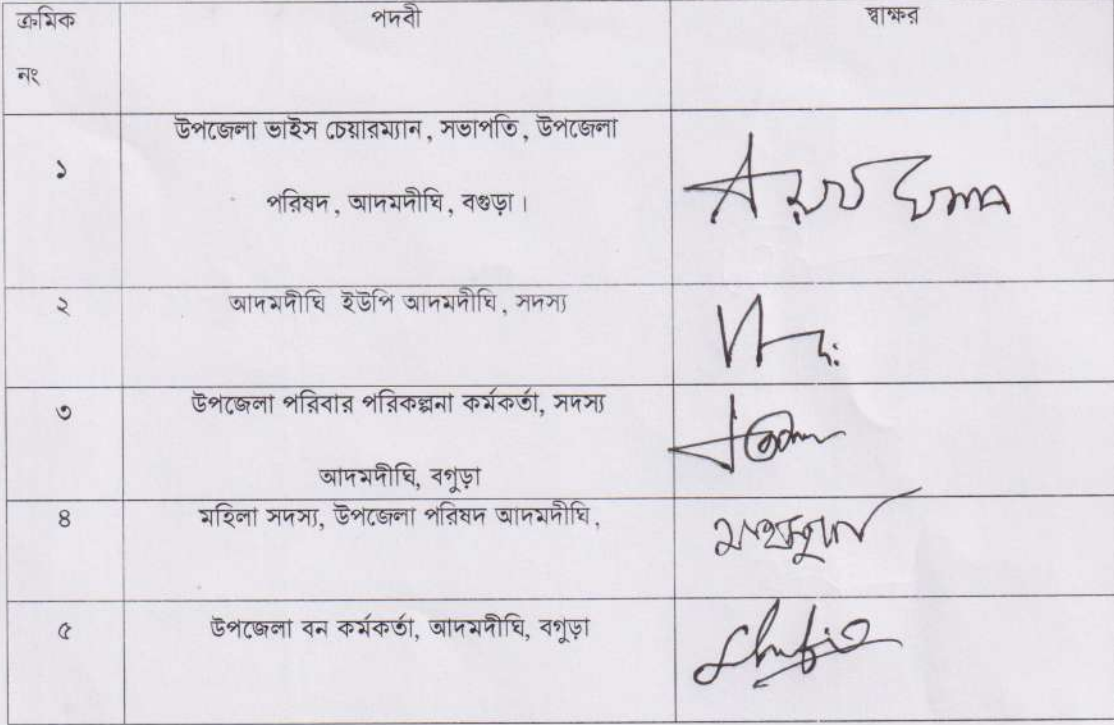 ক্রমিক পদবী স্বাক্ষর
নং
উপজেলা ভাইস চেয়ারম্যান , সভাপতি , উপজেলা
১
পরিষদ , আদমদীঘি , বগুড়া ।
২ আদমদীঘি ইউপি আদমদীঘি , সদস্য
৩ উপজেলা পরিবার পরিকল্পনা কর্মকর্তা, সদস্য
আদমদীঘি, বগুড়া
৪ মহিলা সদস্য, উপজেলা পরিষদ আদমদীঘি ,
৫ উপজেলা বন কর্মকর্তা, আদমদীঘি, বগুড়া